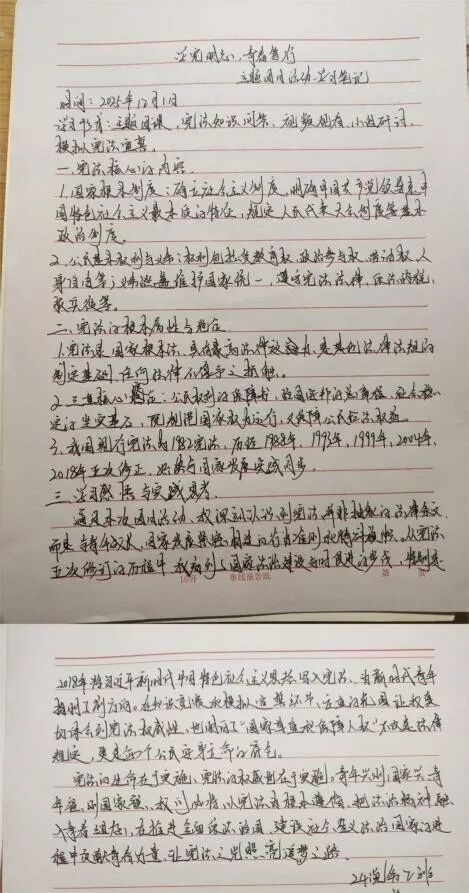 学宪明志，青春笃行
主题团日活动学习笔记
时间：2025年12月1日
学习形式：主题团课、宪法知识问答、视频观看、小组研讨、
模拟宪法宣誓。
一、宪法核心的内容
1.国家根本制度：确立社会主义制度，明确中国共产党领导是中
国特色社会主义最本质的特征，规定人民代表大会制度等基本
政治制度。
2.公民基本权利与义务：权利包括受教育权、政治参与权、劳动权、人
身自由等；义务涵盖维护国家统一、遵守宪法法律、依法纳税、
服兵役等。
二、宪法的根本属性与地位
1.宪法是国家根本法，具有最高法律效力，是其他法律法规的
制定基础，任何法律不得与之抵触。
2.三重核心定位：公民权利的保障书，治国安邦的总章程，社会稳
定的坚实基石，既规范国家权力运行，又保障公民合法权益。
3.我国现行宪法为1982宪法，历经1988年、1993年、1999年、2004年、
2018年五次修正，始终与国家发展实践同步。
三、学习感悟与实践思考
通过本次团日活动，我深刻认识到宪法并非抽象的法律条文
而是
五次修订的历程中，我看到了国家法治建设与时俱进的步伐，特别是
16开 单线报告纸 第 页
2018年将习近平新时代中国特色社会主义思想写入宪法，为新时代青年
指明了前方向。在
切体会到宪法权威性，也明白了“国家尊重和保障人权”不仅是法律
规定，更是每个公民安身立命的底气。
宪法的生命在于实施，宪法的权威也在于实施。青年兴则国家兴，青
年强则国家强，我们必将以宪法为根本遵循，把法治精神融
入青春担当，在推进全面依法治国、建设社会主义法治国家的进
程中贡献青春力量，让宪法之光照亮追梦之路。